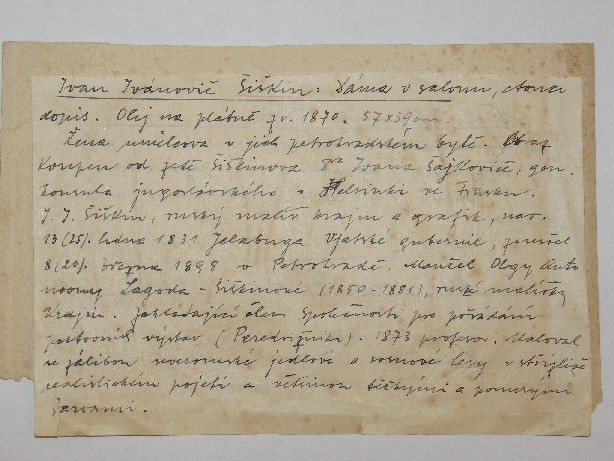 Ivan Ivánovič Šiškin: Dáma v salonu, čtoucí
dopis. Olej na plátně z r. 1870. 57x39cm.
Žena umělcova v jejich petrohradském bytě. Obraz
koupen od zetě Šiškinova Dra Ivana Šajkoviče, gen.
konsula jugoslávského v Helsinki ve Finsku.
I. I. Šiškin, ruský malíř krajin a grafik, nar.
13(25). ledna 1831 Jelabuga Vjatské gubernie, zemřel
8(20). března 1898 v Petrohradě. Manžel Olgy Anto
novny Lagoda-Šiškinové (1850-1881), ruské malířky
krajin. Zakládající člen Společnosti pro pořádání
putovních výstav (Peredvižniki). 1873 profesor. Maloval
se zálibou severoruské jedlové a sosnové lesy v střízlivě
realistickém pojetí a většinou těžkými a ponurými
barvami.